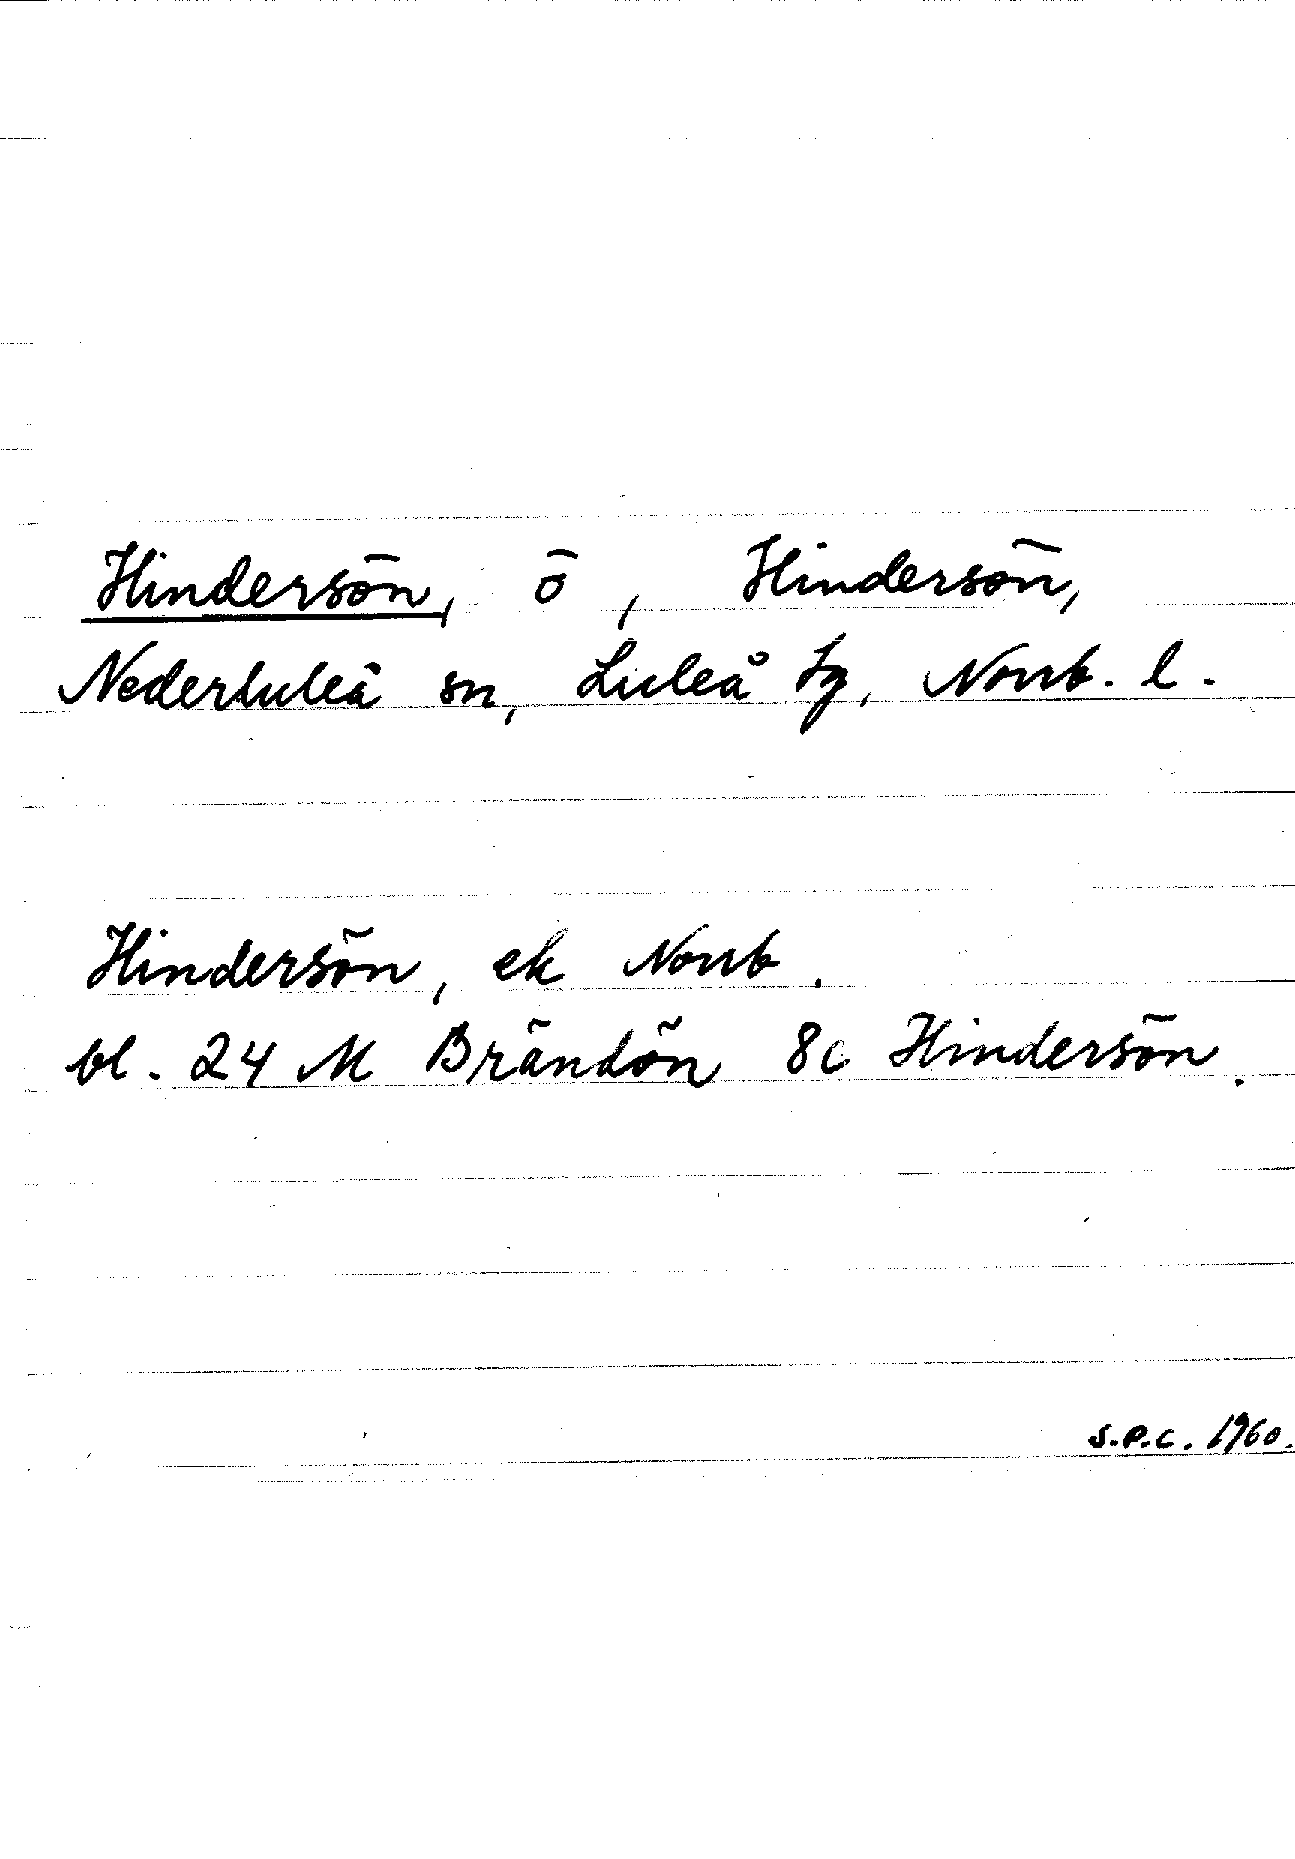 Hindersön, ö, Hindersön,
Nederluleå sn, Luleå tg, Norrb. l.
Hindersön, ek Norrb.
bl. 24 M Brändön 8c Hindersön.
S.P.C. 1960.